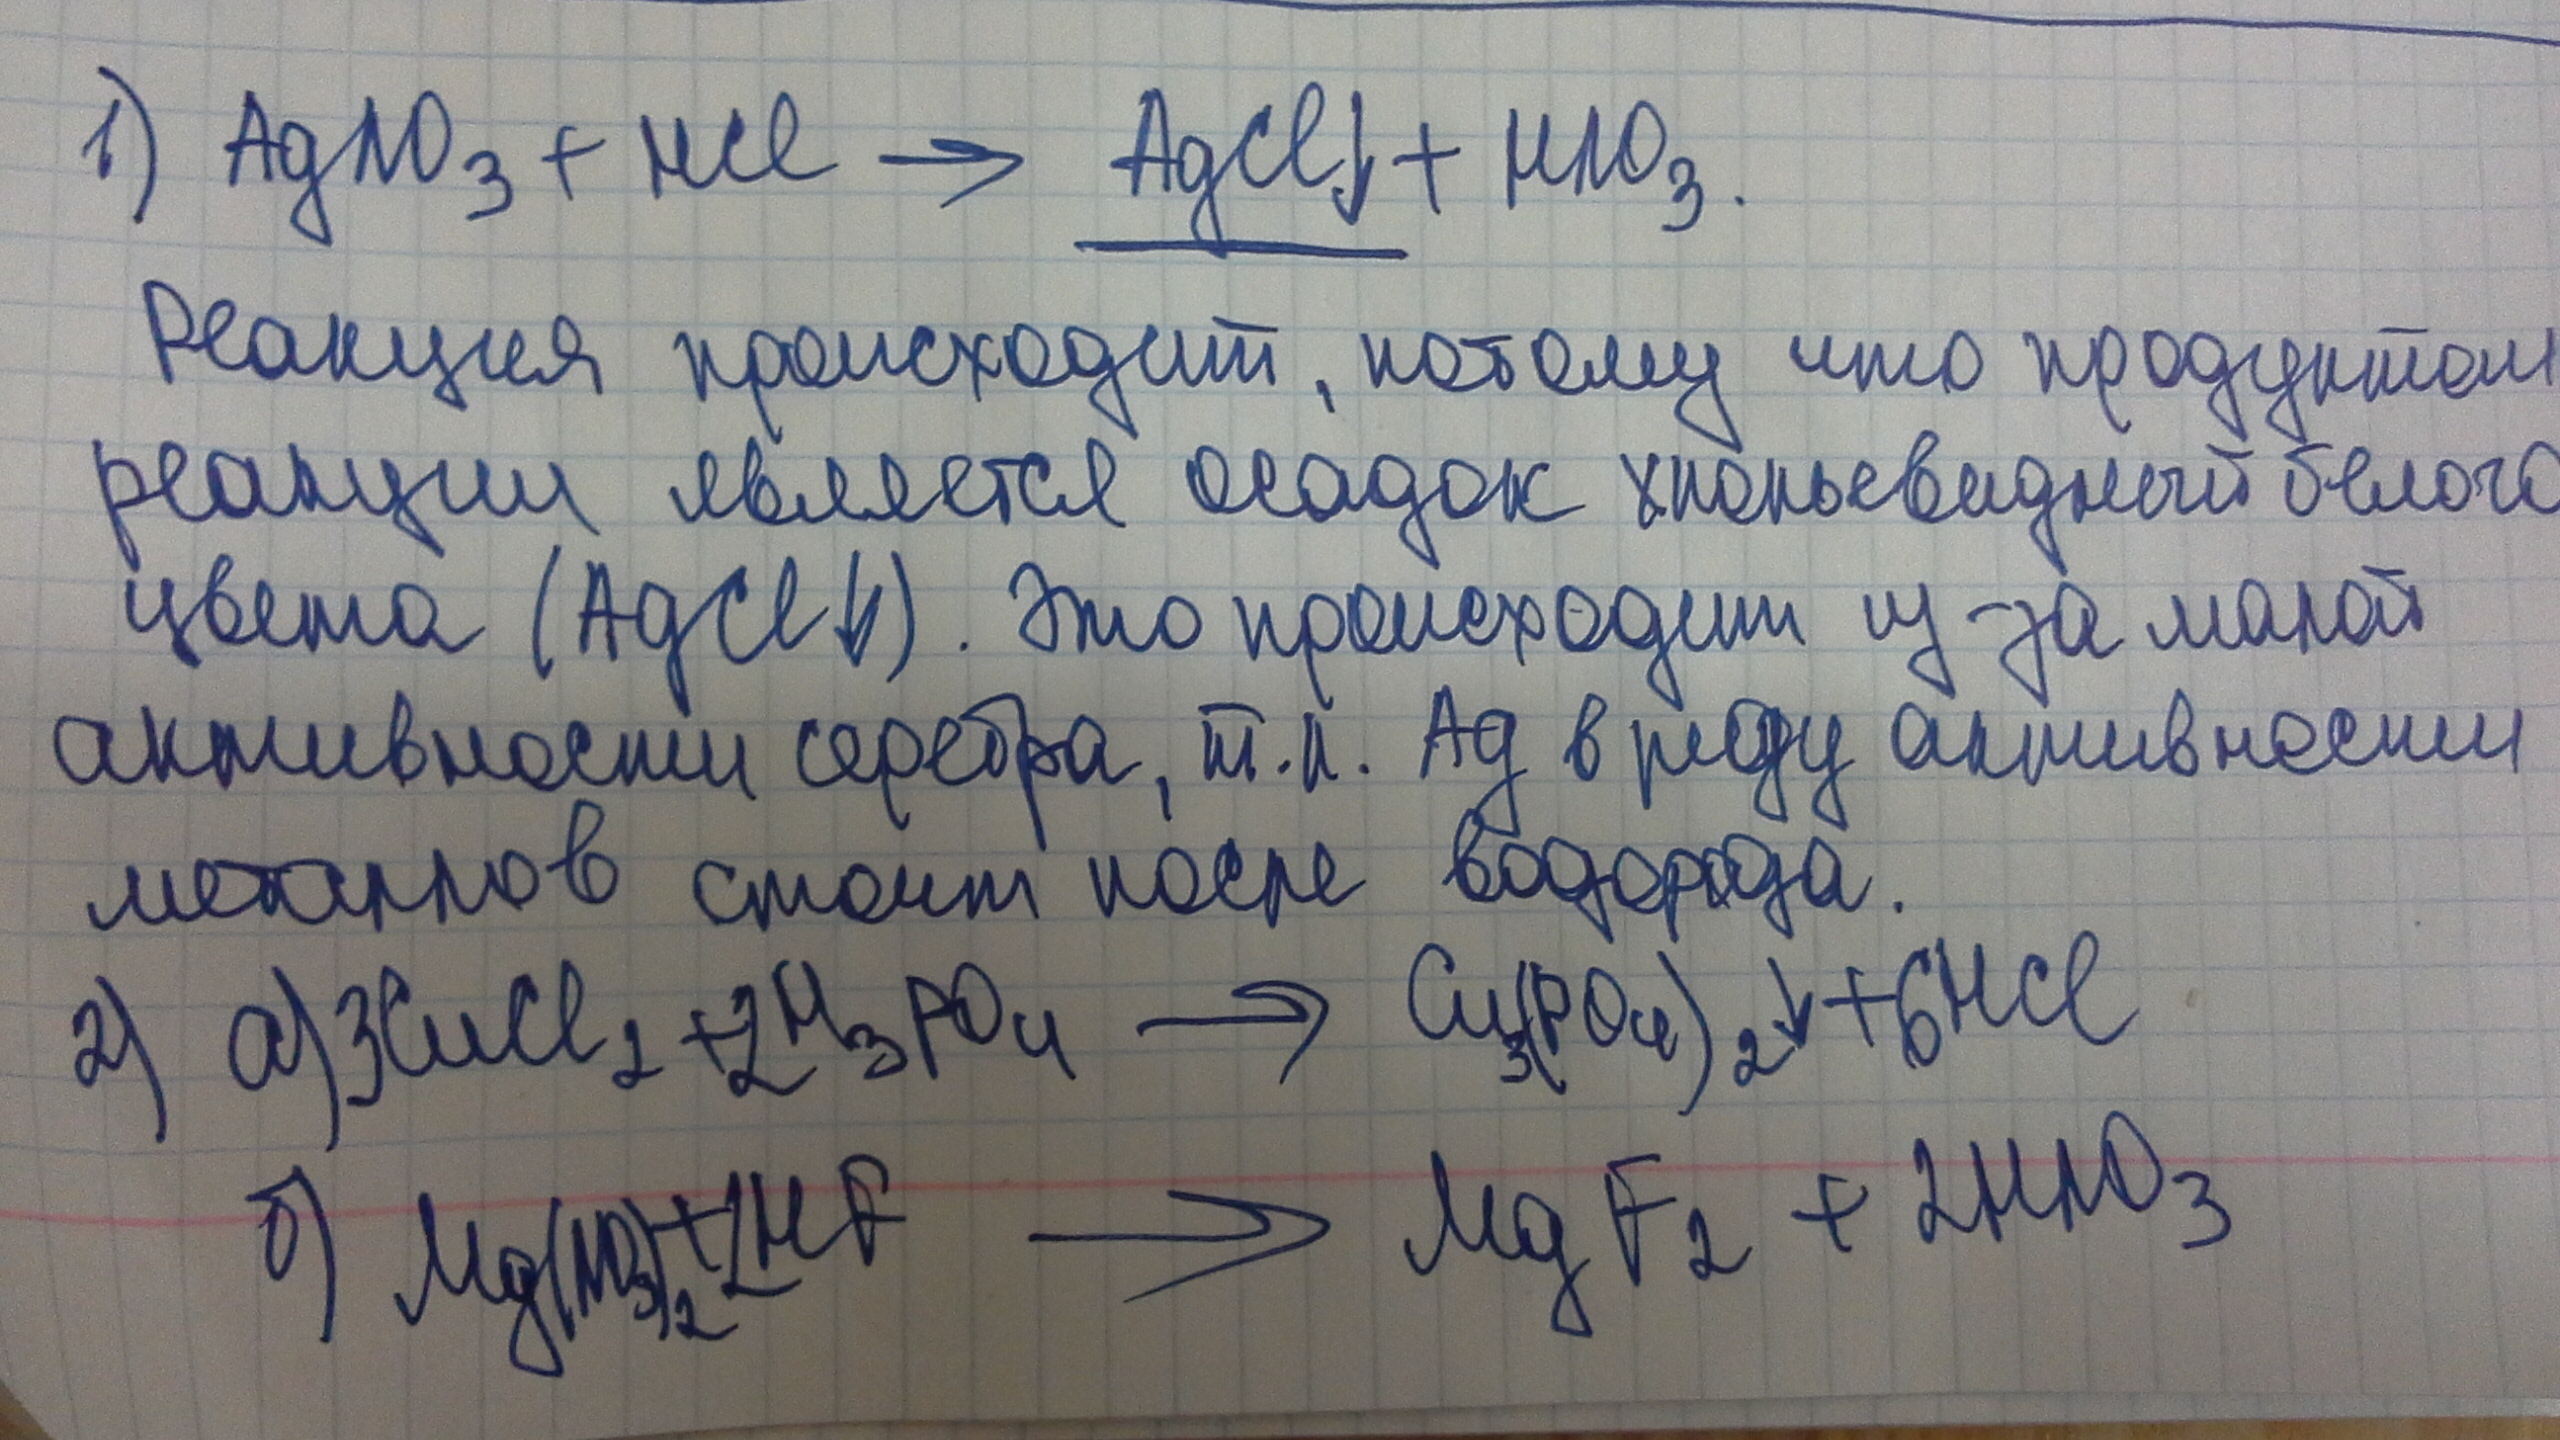 1) AgNO₃ + HCl → AgCl↓ + HNO₃.
Реакция происходит, потому что продуктом
реакции является осадок хлопьевидный белого
цвета (AgCl↓). Это происходит из-за малой
активности серебра, т.к. Ag в ряду активности
металлов стоит после водорода.
2) а) 3CuCl₂ + 2H₃PO₄ → Cu₃(PO₄)₂↓ + 6HCl
б) Mg(NO₃)₂ + 2HF → MgF₂ + 2HNO₃